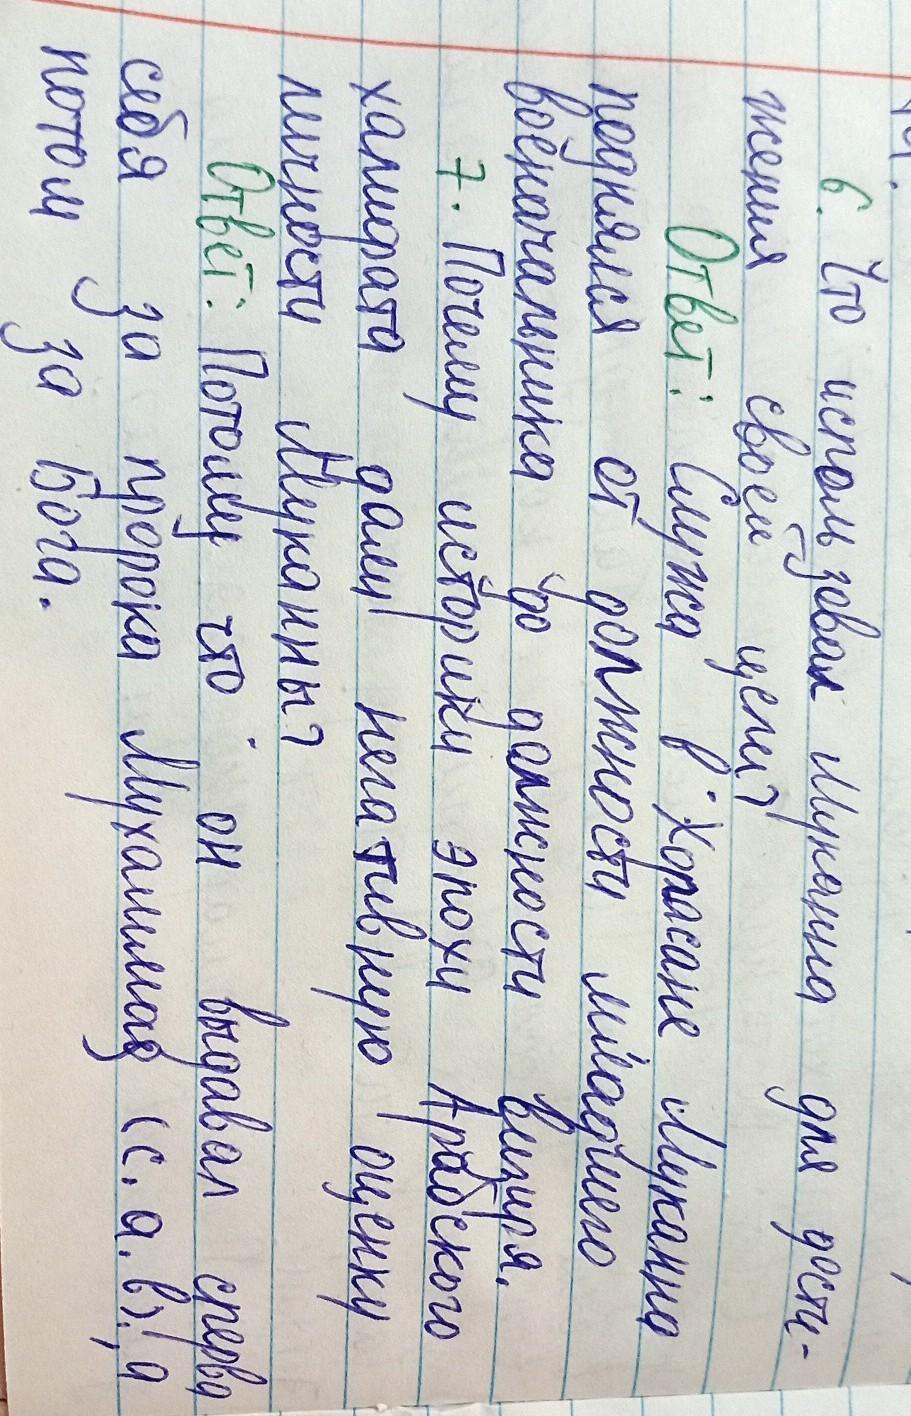 6. Что использовал Муканна для дости-
жения своей цели?
Ответ: Служа в Хорасане Муканна
поднялся от должности младшего
военачальника до должности визиря.
7. Почему историки эпохи Арабского
халифата дали негативную оценку
личности Муканны?
Ответ: Потому что он выдавал сперва
себя за пророка Мухаммад (с.а.в), а
потом за Бога.